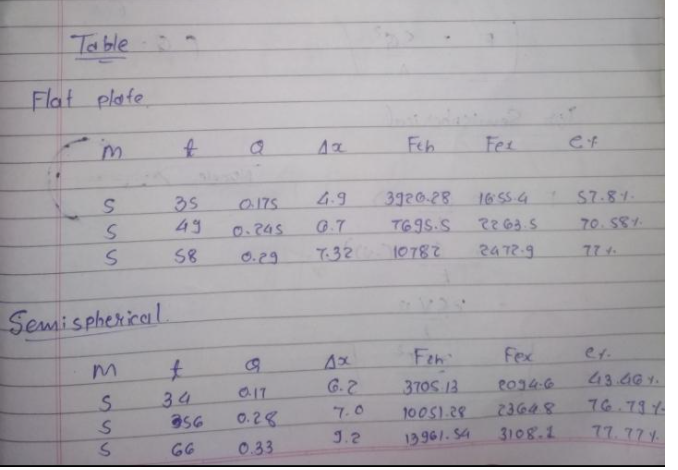 Table
Flat plate
m t Q Δx Fth Fex e%
5 35 0.175 4.9 3920.28 1655.4 57.8%
5 49 0.245 6.7 7695.5 2263.5 70.58%
5 58 0.29 7.32 10782 2472.9 77%
Semispherical
m t Q Δx Fth Fex e%
5 34 0.17 6.2 3705.13 2094.6 43.46%
5 56 0.28 7.0 10051.28 2364.8 76.79%
5 66 0.33 9.2 13961.54 3108.1 77.77%